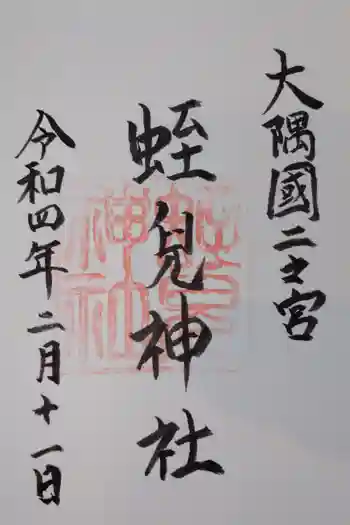 大隅國二之宮
蛭兒神社
令和四年二月十一日